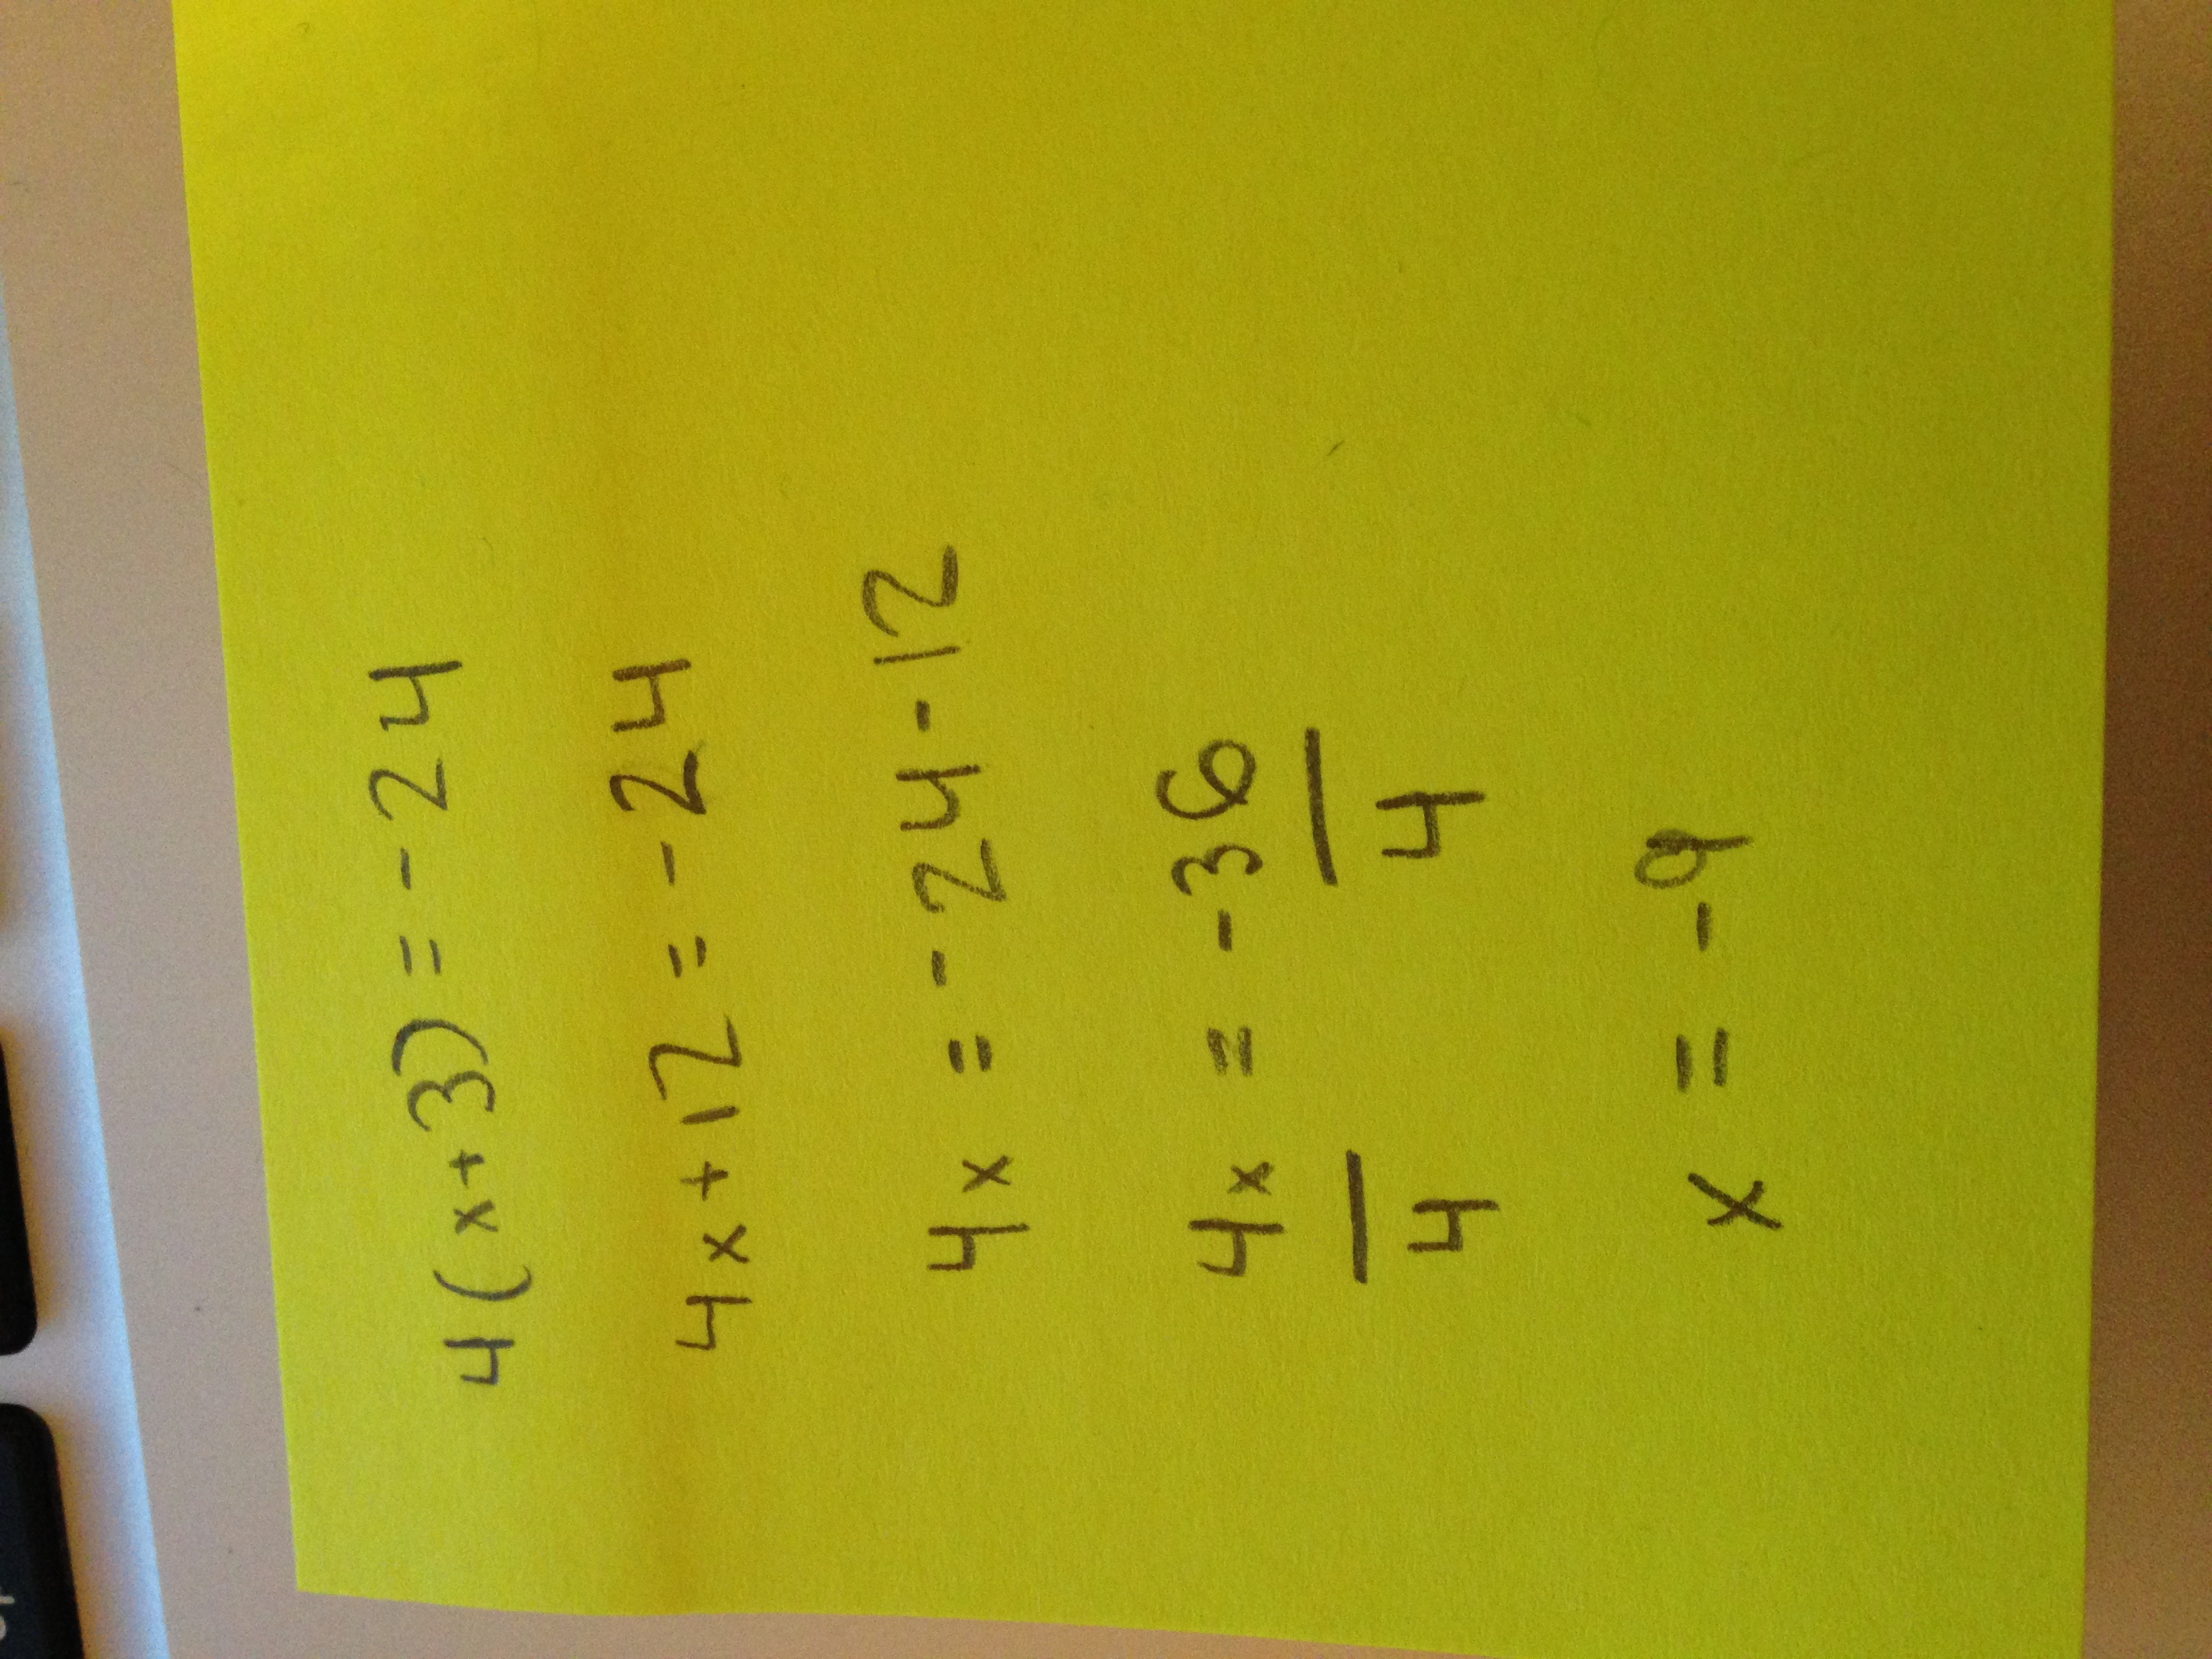 4(x+3)=-24
4x+12=-24
4x=-24-12
4x = -36
4 4
x = -9